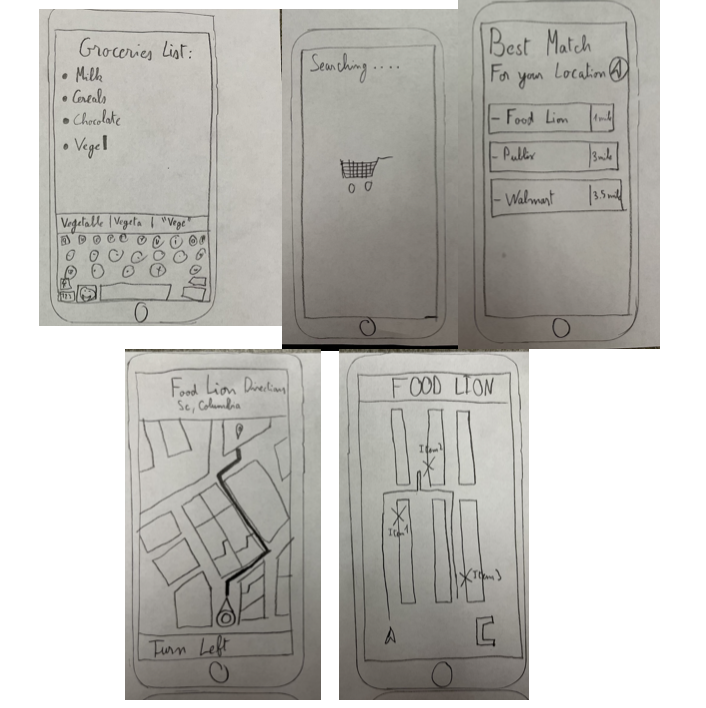 Groceries List:
• Milk
• Cereals
• Chocolate
• Vege
Vegetable | Vegeta | "Vege"
Searching....
Best Match
For your Location
- Food Lion | 1 mile
- Publix | 3 mile
- Walmart | 3.5 mile
Food Lion Directions
Sc, Columbia
Turn Left
FOOD LION
Item2
Item1
Item3